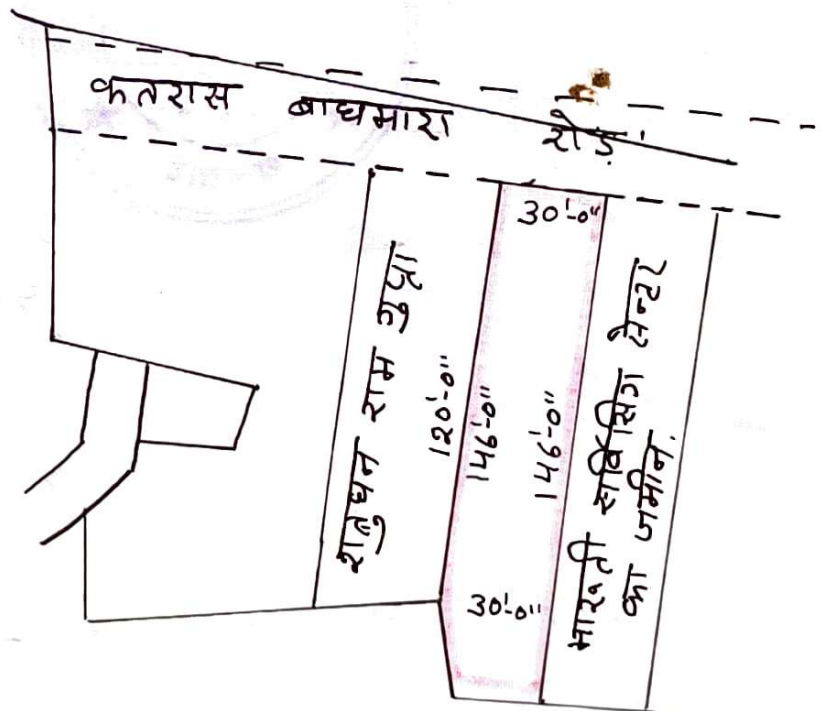 कतरास बाघमारा रोड़
30'-0"
शत्रुघन राम गुप्ता
120'-0"
146'-0"
146'-0"
भारती सर्विसिंग सेन्टर
का जमीन.
30'-0"